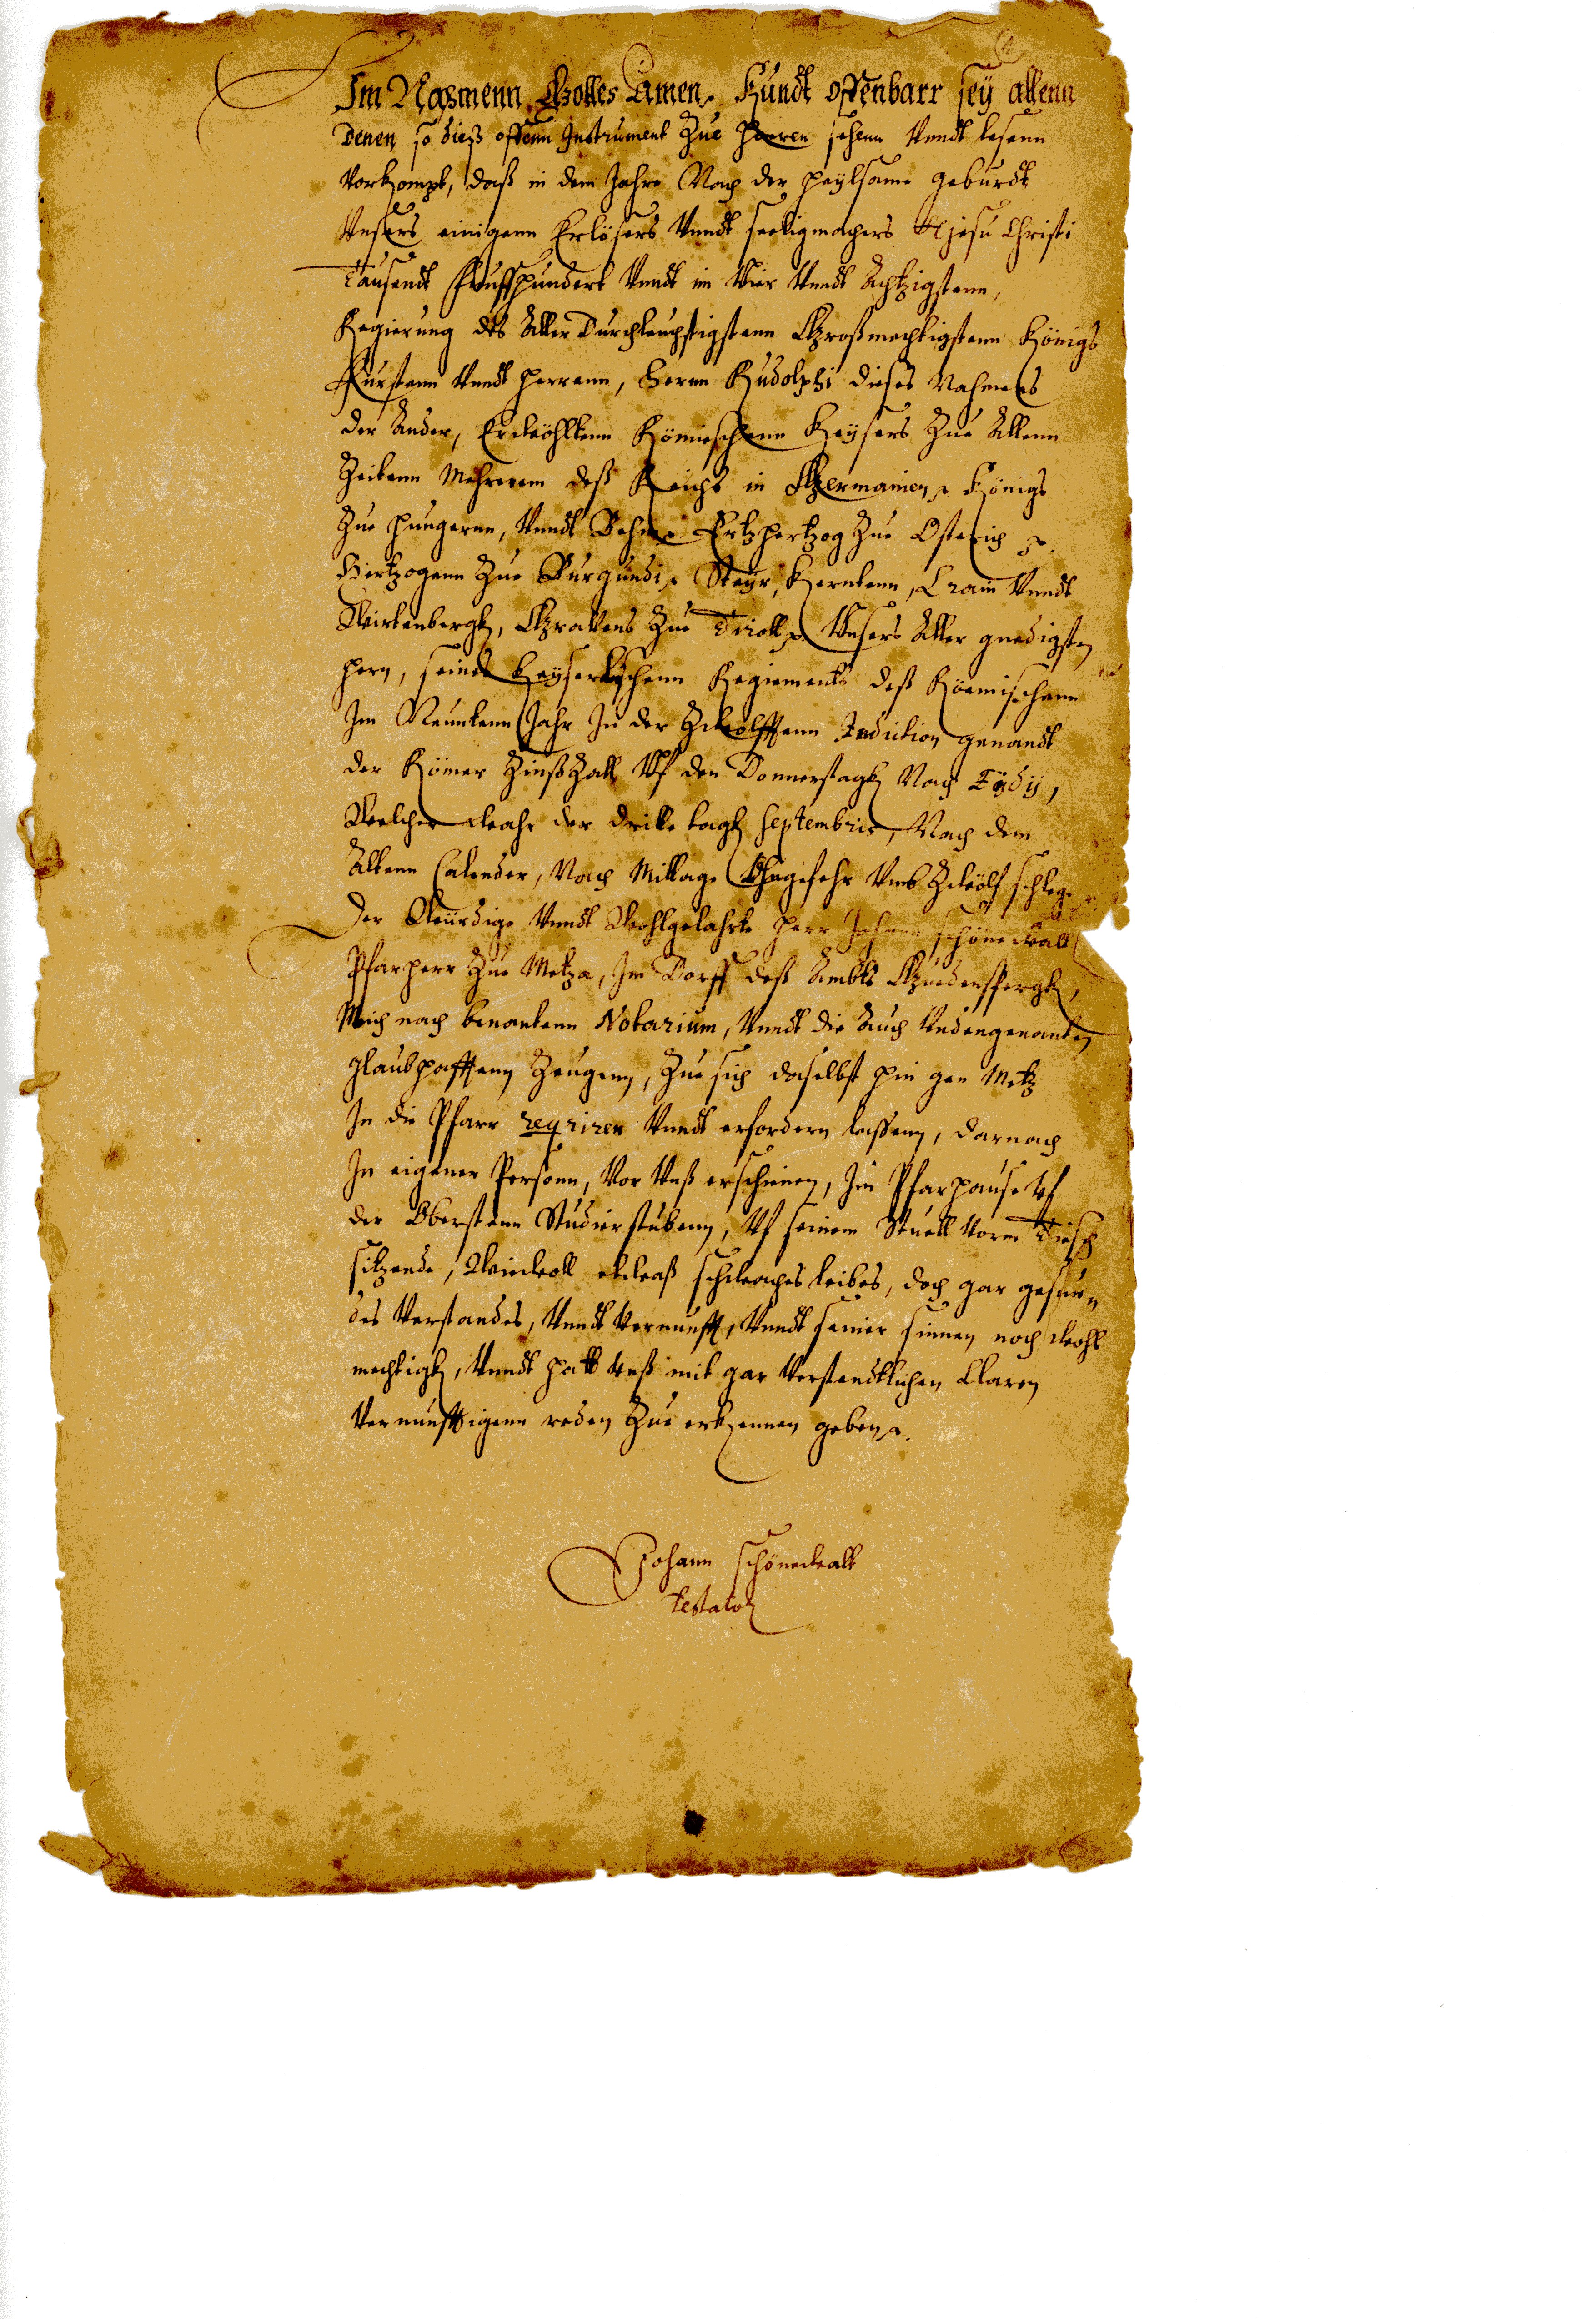 Im Nahmenn Gottes Amen. Kundt offenbarr sey allenn
Denen, so dieß offenn Instrument Zue Hoeren sehenn Vnndt lesenn
Vorkompt, daß in dem Jahre Nach der heylsame geburdt
Vnsers einigenn Erlösers Vnndt seeligmachers Jesu Christi
Tausendt Funffhundert Vnndt im Vier Vnndt Achtzigstenn,
Regierung des Aller Durchleuchtigstenn Großmechtigstenn Königs
Furstenn Vnndt herrenn, Herrn Rudolphi dieses Nahmens
der Ander, Erwöhltenn Römischenn Keysers Zue Allenn
Zeitenn Mehrerem deß Reichs in Germanien, Königs
Zue hungernn, Vnndt Behm, Ertzhertzog Zue Osterich
Hertzogenn Zue Burgundi, Steyr, Kerntenn, Crain Vnndt
Wirtenbergk, Gravens Zue Tiroll, Vnsers Aller gnedigsten
hern, seines Keyserlichenn Regiements deß Röemischenn
Im Neuntenn Jahr In der Zwolfftenn Indiction genandt
der Römer ZinßZall Vf den Donnerstagk Nach
Welcher wahr der dritte tagk Septembris, Nach dem
Altenn Calender, Nach Mittage Ohngefehr Vmb Zwölf schlege
Der Würdige Vnndt Wohlgelahrte herr Johann schönewalt
Pfarherr Zue Metza, Im Dorff deß Ambts Gudensbergk,
Mich nach benantenn Notarium, Vnndt die Auch Vndengenanten
glaubhafftenn Zeugenn, Zue sich daselbst hin gen Metz
In die Pfarr reqriren Vnndt erfordern lassenn, darnach
In eigener Personn, Vor Vnß erschienen, Im Pfarhause Vf
der Oberstenn Studierstubenn, Vf seinem Stuell Vorm Tiesch
sitzende, Wiewoll etwaß schwaches leibes, doch gar gesun,
des Verstandes, Vnndt Vernunfft, Vnndt seiner sinnen noch wohl
mechtigk, Vnndt hatt Vnß mit gar Verstendtlichen Claren
Vernunfftigenn reden Zue erkennen geben.
Johann schönewalt
Testator